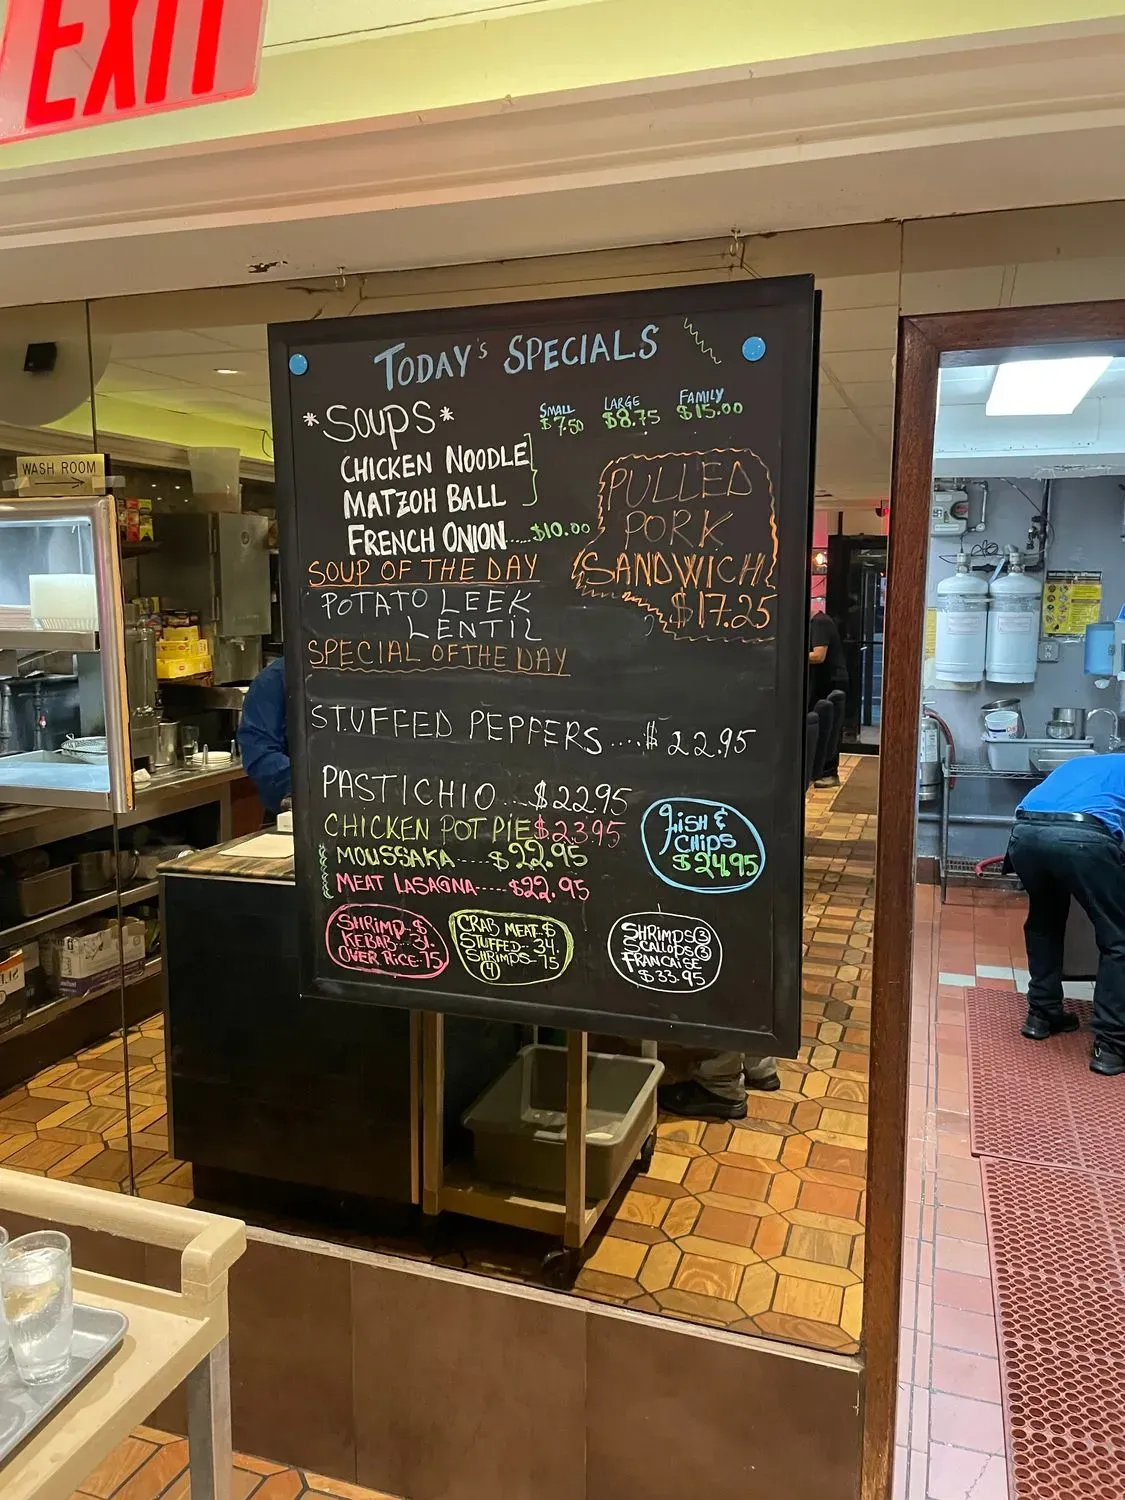 EXIT
TODAY'S SPECIALS
*SOUPS*
SMALL LARGE FAMILY
$7.50 $8.75 $15.00
CHICKEN NOODLE
MATZOH BALL
FRENCH ONION.....$10.00
PULLED
PORK
SANDWICH
$17.25
SOUP OF THE DAY
POTATO LEEK
LENTIL
SPECIAL OF THE DAY
STUFFED PEPPERS....$22.95
PASTICHIO...$22.95
CHICKEN POT PIE $23.95
MOUSSAKA----$22.95
MEAT LASAGNA-----$22.95
FISH &
CHIPS
$24.95
SHRIMP-$
KEBAB--31.
OVER RICE-75
CRAB MEAT-$
STUFFED--34.
SHRIMPS-75
(4)
SHRIMPS(3)
SCALLOPS(3)
FRANCAISE
$33.95
WASH ROOM